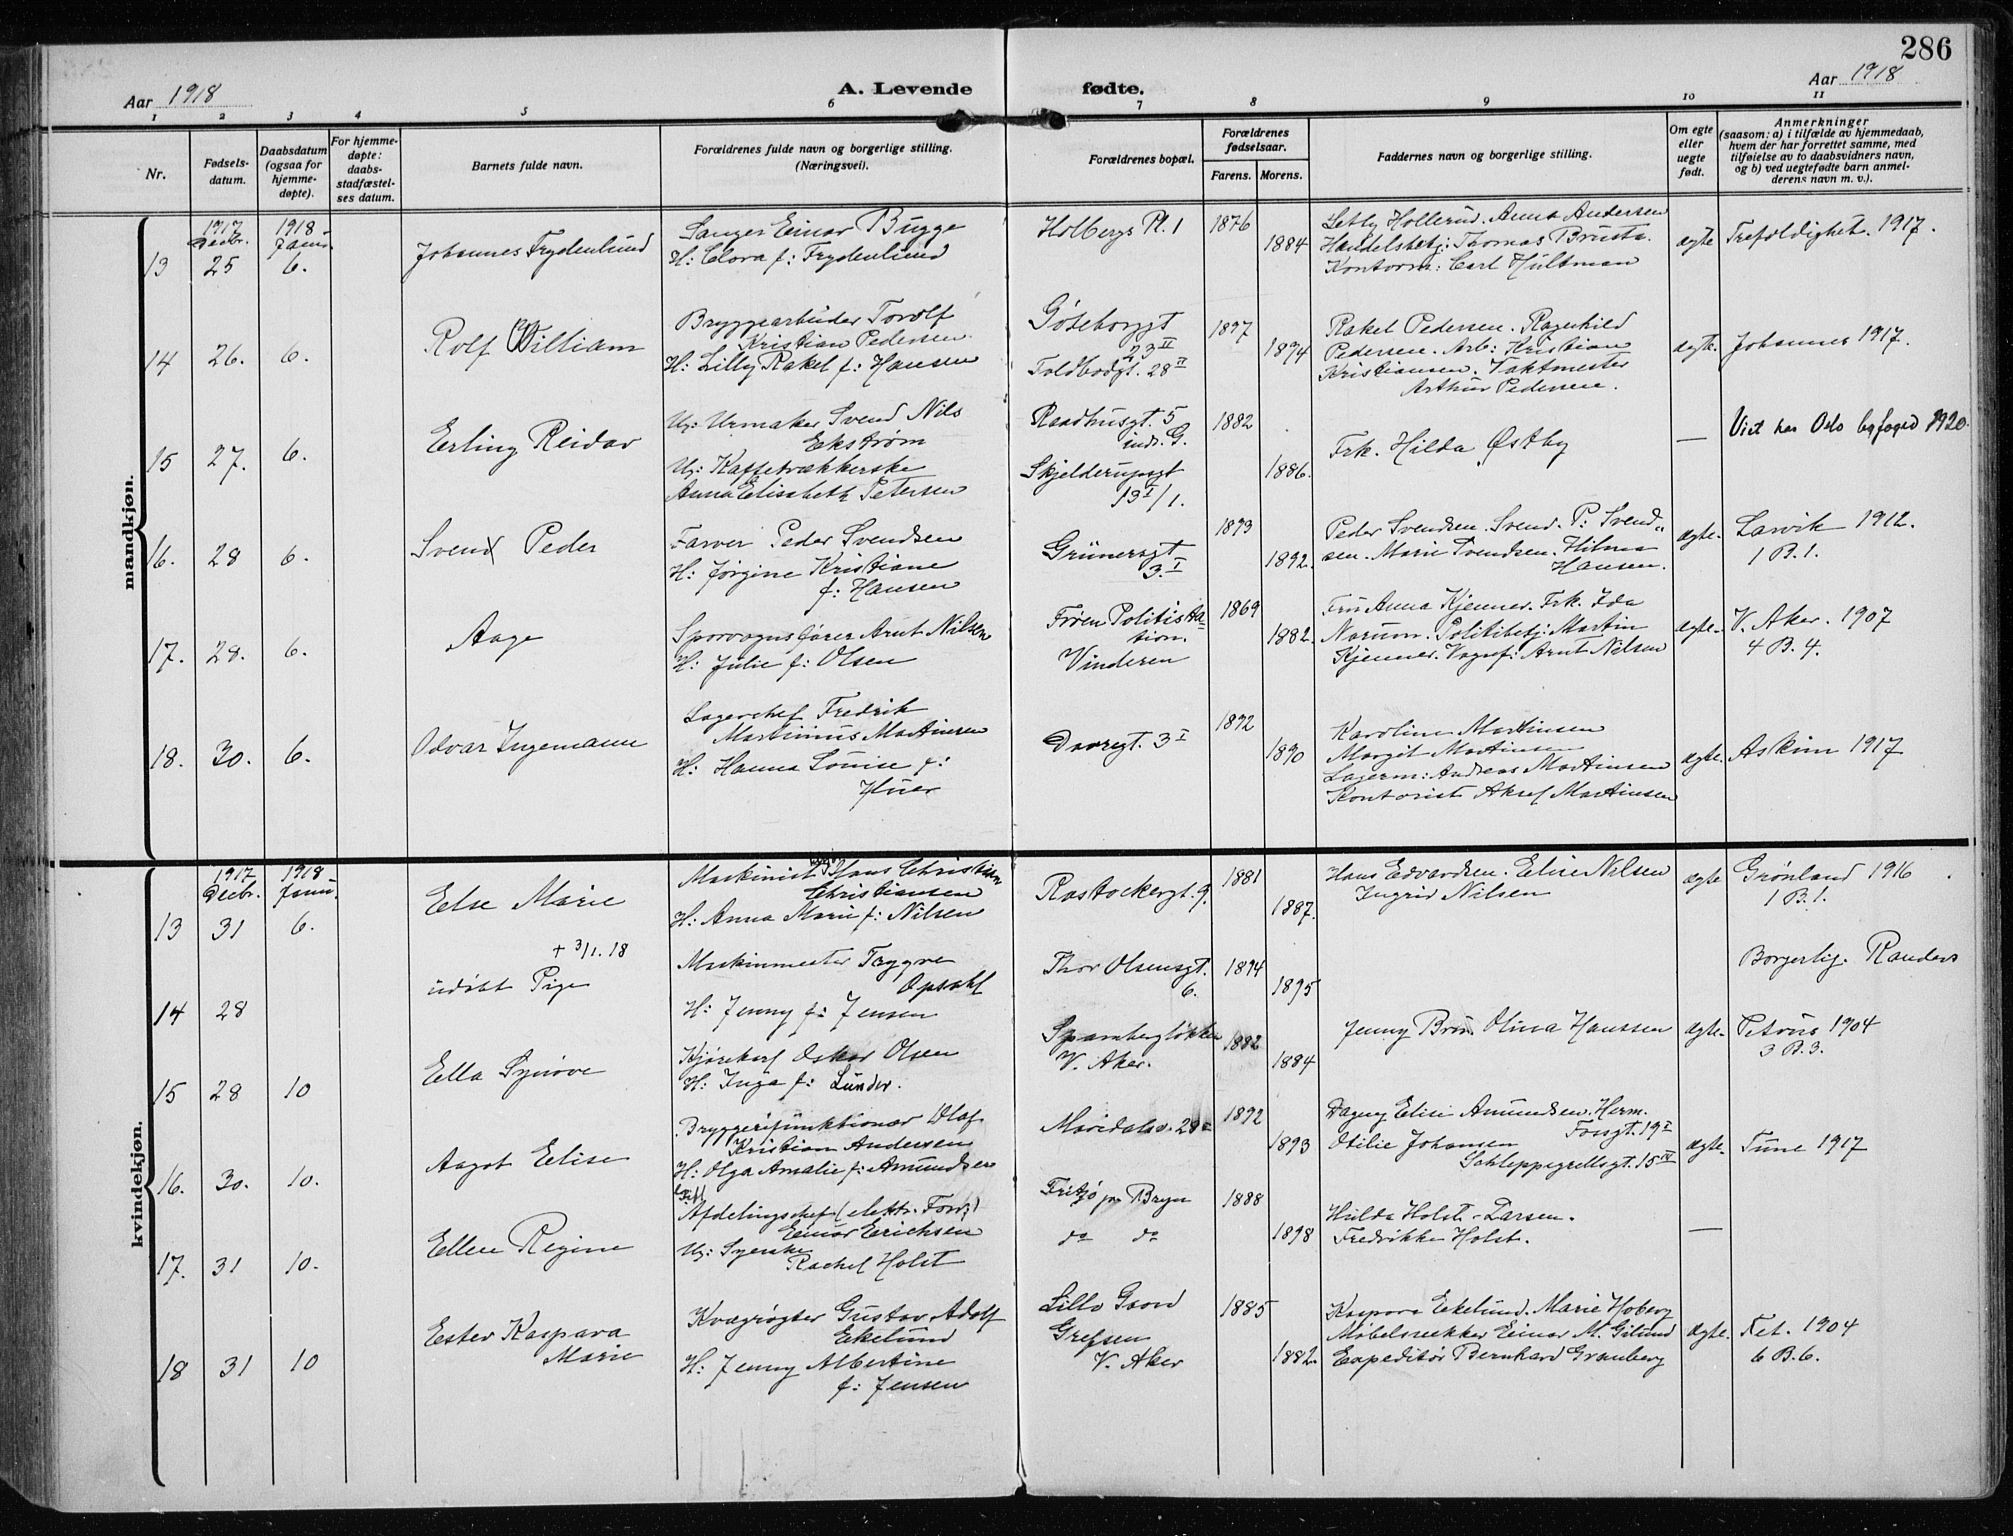 286
Aar 1918
A. Levende fødte.
Aar 1918
1 2 3 4 5 6 7 8 9 10 11
Nr.
Fødsels-
datum.
Daabsdatum
(ogsaa for
hjemme-
døpte).
For hjemme-
døpte:
daabs-
stadfæstel-
ses datum.
Barnets fulde navn.
Forældrenes fulde navn og borgerlige stilling.
(Næringsvei).
Forældrenes bopæl.
Forældrenes
fødselsaar.
Farens. Morens.
Faddernes navn og borgerlige stilling.
Om egte
eller
uegte
født.
Anmerkninger
(saasom: a) i tilfælde av hjemmedaab,
hvem der har forrettet samme, med
tilføielse av to daabsvidners navn,
og b) ved uegtefødte barn anmel-
derens navn m. v.).
mandkjøn.
1917 1918
Decbr. Janu.
13 25 6.
Johannes Frydenlund
Sanger Einar Bugge
H: Clara f: Frydenlund
Holbergs Pl. 1
1876
1884
Hollerud. Anna Andersen
Handelsbetj: Thomas Brusta.
Kontorm: Carl Hultman
ægte
Trefoldighet. 1917.
14 26. 6.
Rolf William
Bryggearbeider Torolf
Kristian Pedersen
H: Lilly Rakel f: Hansen
Gøteborggt
23 II
Toldbodgt. 28 II
1897
1894
Rakel Pedersen. Ragnhild
Pedersen. Arb: Kristian
Kristiansen. Vaktmester
Arthur Pedersen.
ægte.
Johannes 1917.
15 27. 6.
Erling Reidar
Ug: Urmaker Svend Nils
Ekstrøm
Ug: Kaffetrækkerske
Anna Elisabeth Petersen
Raadhusgt. 5
indr. G.
Skjelderupsgt
13 I/1.
1882
1886.
Frk. Hilda Østby
—
Viet hos Oslo byfoged 1920.
16. 28 6.
Svend Peder
Farver Peder Svendsen
H: Jørgine Kristiane
f: Hansen
Grünersgt
3. I
1893
1892.
Peder Svendsen. Svend. P: Svend„
sen. Marie Svendsen. Hilma
Hansen.
ægte.
Larvik 1912.
1 B. 1.
17. 28. 6.
Aage
Sporvognsfører Arnt Nilsen
H: Julie f: Olsen
Frøen Politista-
tion.
Vinderen
1869
1882.
Fru Anna Kjenner. Frk. Ida
Norum. Politibetj: Martin
Kjenner. Vognf: Arnt Nilsen
ægte.
V. Aker. 1907
4 B. 4.
18. 30. 6.
Odvar Ingemann
Lagerchef Fredrik
Martinius Martinsen
H: Hanna Louise f:
Huer
Daaegt. 3 I
1892
1890
Karoline Martinsen
Margit Martinsen
Lagerm: Andreas Martinsen
Kontorist Aksel Martinsen
ægte.
Askim 1917
kvindekjøn.
1917 1918
Decbr. Janu.
13 31 6.
Else Marie
Maskinist Hans Christian
Christiansen
H: Anna Marie f: Nilsen
Rostockergt. 9.
1881
1887.
Hans Edvardsen. Elise Nilsen
Ingrid Nilsen
ægte
Grønland 1916
1 B. 1.
14 28
+ 3/1. 18
udøbt Pige
Maskinmester Trygve
Opsahl
H: Jenny f: Jensen
Thor Olsensgt.
6.
1894
1895
Borgerlig. Randers
15 28 10
Ella Synøve
Kjørekarl Oskar Olsen
H: Inga f: Lunder.
Spamberglökken
V. Aker.
1882
1884
Jenny Brun Olina Hanssen
ægte.
Petrus 1904
3 B. 3.
16. 30. 10.
Aagot Elise
Bryggerifunktionær Olaf
Kristian Andersen
H: Olga Amalie f: Amundsen
Maridalsv. 28
1892
1893
Dagny Elise Amundsen. Herm.
Fossgt. 19 I
Otilie Johansen
Schleppegrellsgt. 15 IV
ægte.
Tune 1917
17. 31 10.
Ellen Regine
Afdelingschef (elektr. Forr.)
Einar Erichsen
Ug: Syerske
Rachel Holst
Fritjø pr Bryn
do do
1888
1898
Hulda Holst-Larsen.
Fredrikke Holst.
—
18 31 10
Ester Kaspara
Marie
Kvægrøgter Gustav Adolf
Ekelund
H: Jenny Albertine
f: Jensen
Lillo Gaard
Grefsen
V. Aker
1885
1882.
Kaspara Ekelund. Marie Hoberg
Møbelsnekker Einar M. Gilund
Expeditør Bernhard Granberg
ægte.
Fet. 1904
6 B. 6.